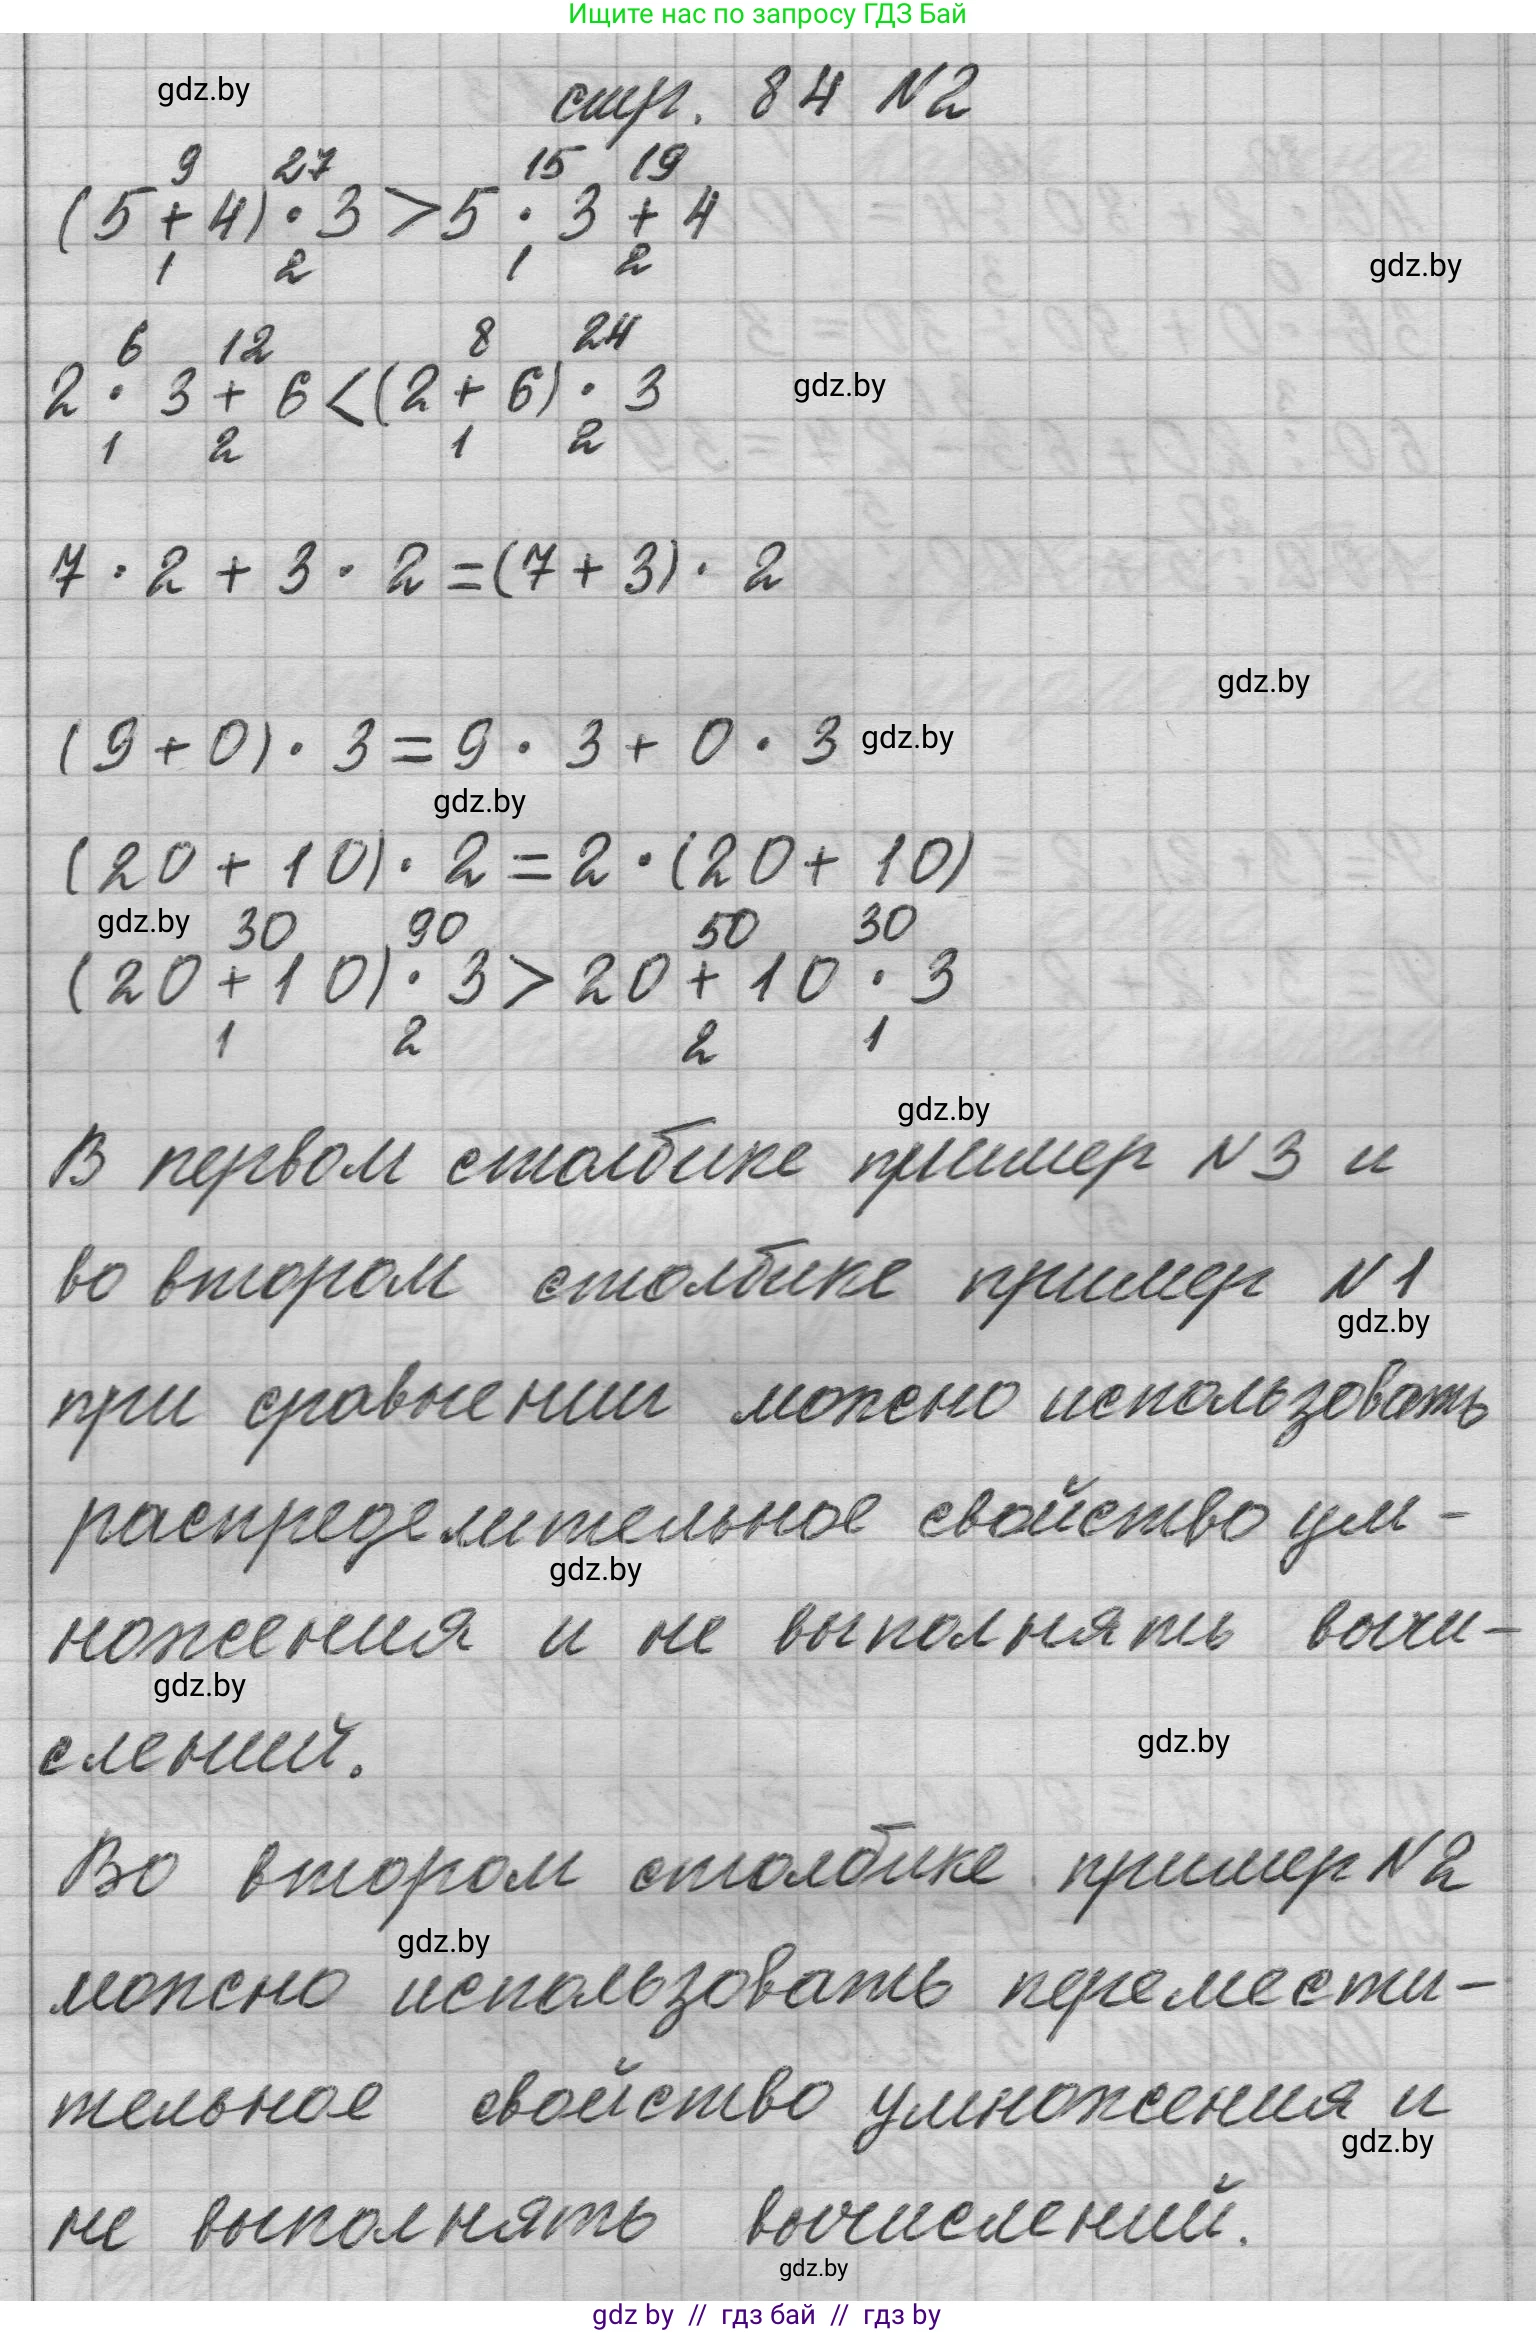 Ищите нас по запросу ГДЗ Бай
gdz.by
стр. 84 №2
9 27 15 19
(5 + 4) · 3 > 5 · 3 + 4
1 2 1 2
gdz.by
6 12 8 24
2 · 3 + 6 < (2 + 6) · 3
gdz.by
1 2 1 2
7 · 2 + 3 · 2 = (7 + 3) · 2
gdz.by
(9 + 0) · 3 = 9 · 3 + 0 · 3
gdz.by
gdz.by
(20 + 10) · 2 = 2 · (20 + 10)
gdz.by
30 90 50 30
(20 + 10) · 3 > 20 + 10 · 3
1 2 2 1
gdz.by
В первом столбике пример №3 и
во втором столбике пример №1
gdz.by
при сравнении можно использовать
распределительное свойство ум-
gdz.by
ножения и не выполнять вычи-
gdz.by
слений.
gdz.by
Во втором столбике пример №2
gdz.by
можно использовать перемести-
тельное свойство умножения и
gdz.by
не выполнять вычислений.
gdz.by
gdz by // гдз бай // гдз by